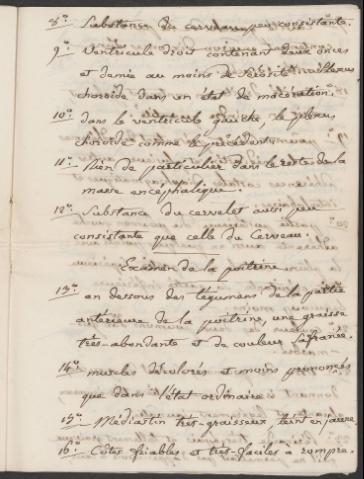 8°. Substance du cerveau peu consistante.
9°. Ventricule droit contenant deux onces
et demie au moins de sérosité, le plexus
choroïde dans un état de macération.
10°. dans le ventricule gauche, le plexus
choroïde comme le précédent.
11°. Rien de particulier dans le reste de la
masse encéphalique.
12°. Substance du cervelet aussi peu
consistante que celle du Cerveau.
Examen de la poitrine
13°. en dessous des tégumens de la partie
antérieure de la poitrine, une graisse
très-abondante et de couleur safranée.
14°. muscles décolorés et moins prononcés
que dans l'état ordinaire.
15°. Médiastin très-graisseux, teint en jaune.
16°. Côtes friables et très-faciles à rompre.